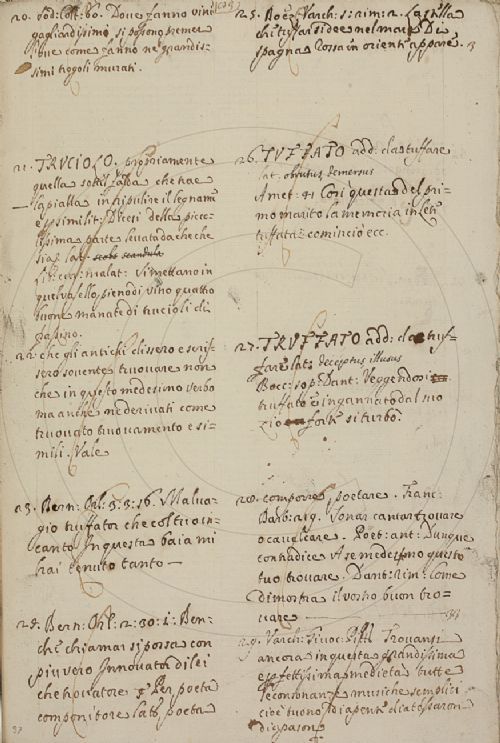 20. Sod: Colt: 60. Dove fanno vini
gagliardissimi, si possono premer
l'uve come fanno ne' grandis-
simi trogoli murati.
21. TRUCIOLO. propriamente
quella sottil falda che trae
la pialla in ripulire il legname
e per similit: Dicesi della picco-
lissima parte levata da che che
sia. lat.
Lib: cur: malat: Si mettano in
quel vasello, pieno di vino quattro
buone manate di trucioli di
22. che gli antichi dissero e scris-
sero sovente truovare non
che in questo medesimo verbo
ma anche ne derivati come
truovato truovamento e si-
mili. Vale
23. Bern: Orl: 3: 3: 56. Malva-
gio truffator che colto o in-
canto In questa baia mi
hai tenuto tanto —
24. Bern: Orl: 2: 30: 1: Ben-
che chiamar si possa con
piu vero Innovator di lei
che trovatore: Per poeta
componitore lat. poeta
25. Boez: Varch: 1: rim: 2. La stella
che tuffar si dee nel mar Di
Spagna Rossa in orienti appare.
26. TUFFATO add: da tuffare
lat. obrutus, demersus
Amet: 41 Così questa del pri-
mo marito la memoria in Leti
tuffata: cominciò ecc.
27. TRUFFATO add: da truf-
fare lat: deceptus, illusus
Bocc: 50 p: Dant: Veggendosi
truffato e ingannato dal suo
zio forte si turbò.
28. comporre, poetare. Franc:
Barb: 219. Sonar cantar trovare
o cavalcare. Poet: ant: Dunque
contradice a se medesmo questo
tuo trovare. Dant: rim: Come
dimostra il vostro buon tro-
vare
29. Varch: Giuoc: Pitt: Trovansi
ancora in questa grandissima
e perfettissima medietà tutte
le consonanze musiche semplici
cioè tuono, diapente diatessaron
diapason